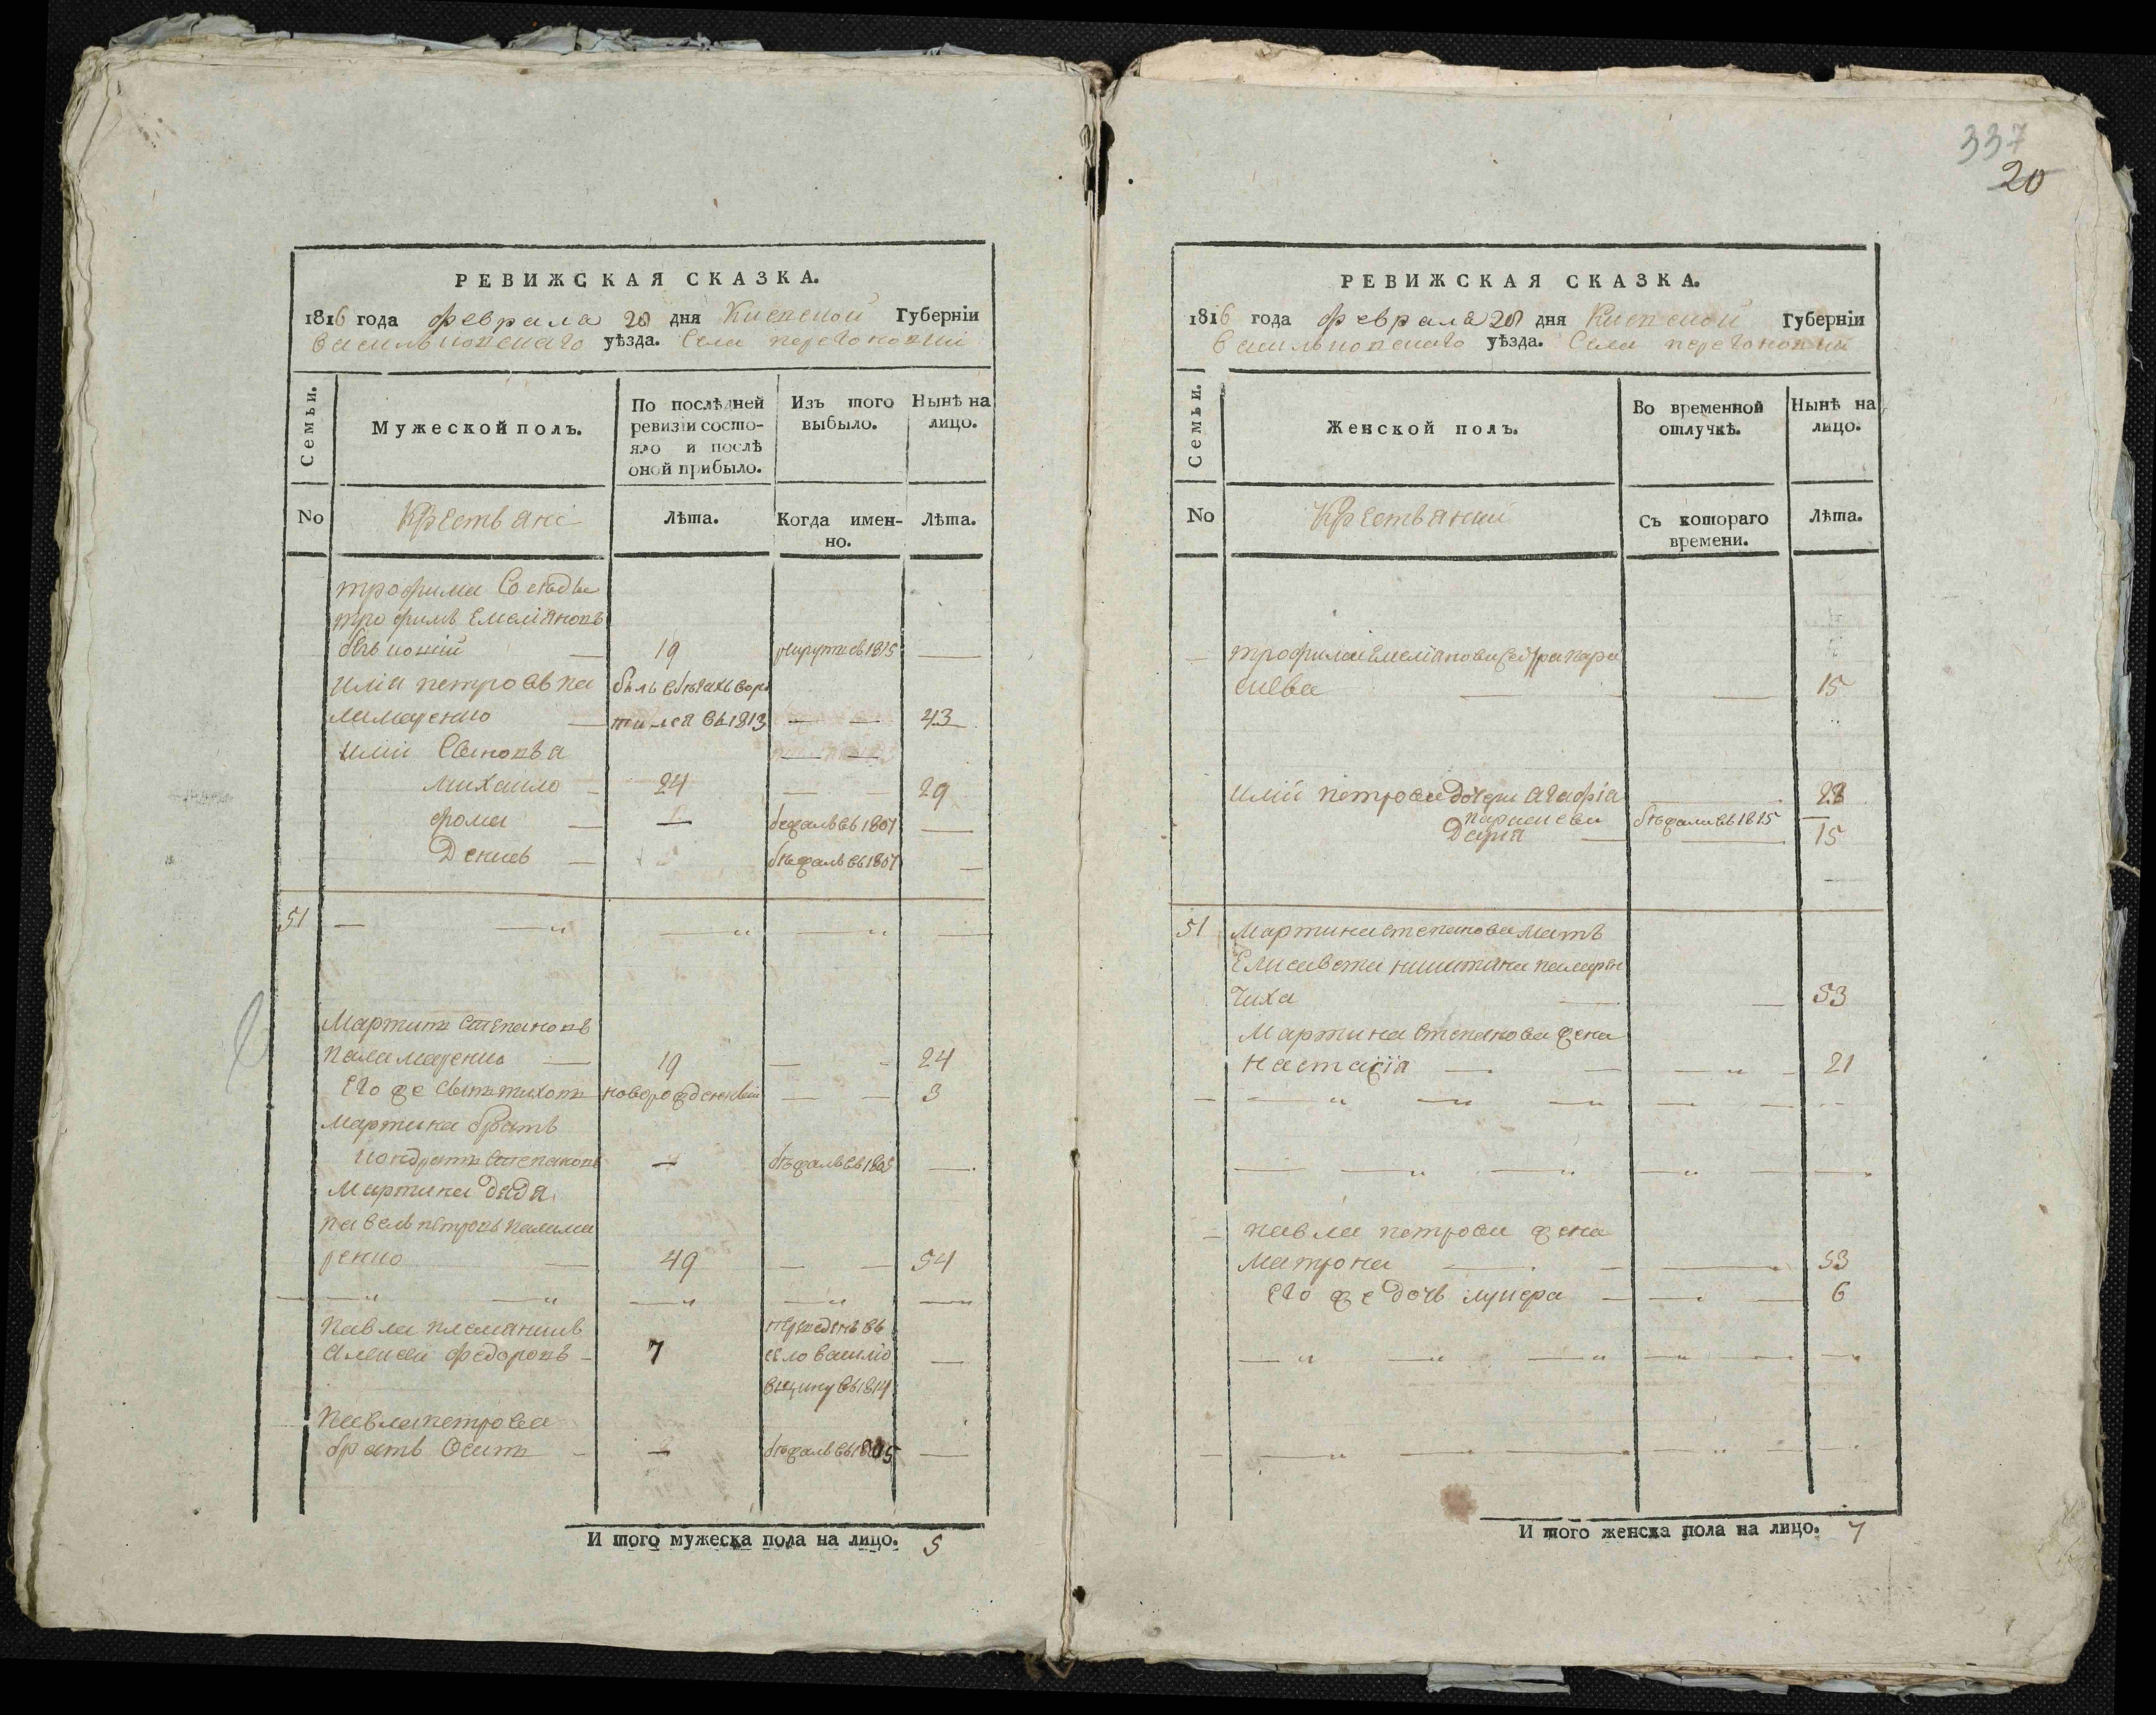 РЕВИЖСКАЯ СКАЗКА.
1816 года февраля 20 дня Киевской Губерніи
Васильковскаго уѣзда. Села перегоновки
Семьи.
Мужеской полъ.
По послѣдней ревизіи состо-
яло и послѣ
оной прибыло.
Изъ того
выбыло.
Нынѣ на
лицо.
No
Крестьяне
Лѣта.
Когда имен-
но.
Лѣта.
трофима
трофимъ Емеліяновъ
19 рекрутъ въ 1815 —
илія петровъ па
ламаренко тился въ 1813 — — 43
иліи Сыновъя — —
михаило — 24 — — 29
фома — — бежалъ въ 1807 —
Денисъ — бѣжалъ въ 1807 —
51 — — — — —
Мартинъ степановъ
паламаренко — 19 — - 24
Его же сынъ тихонъ новорожденный — — 3
мартина братъ
кондратъ степановъ — —
Мартина дядя
павелъ петровъ палама
ренко — 49 — — 54
— — — — —
павла племянникъ переведенъ въ
алексей федоровъ - 7 село —
въ 1814
павла петрова
братъ Осипъ - — бѣжалъ въ 1805 —
И того мужеска пола на лицо. 5
337
20
РЕВИЖСКАЯ СКАЗКА.
1816 года февраля 20 дня Киевской Губерніи
Васильковскаго уѣзда. Села перегоновки
Семьи.
Женской полъ.
Во временной
отлучкѣ.
Нынѣ на
лицо.
No
Крестьянки
Съ котораго
времени.
Лѣта.
трофима Емеліянова Сестра пара
скева — — 15
иліи петрова дочери агафія — 28
параскева бѣжала въ 1815 —
Дарія — — 15
51 мартина степанова мать
Елисавета никитина паларен
чиха — — 53
мартина степанова жена
настасія — — — 21
— — — — — —
— — — — — —
павла петрова жена
матрона — — — 53
Его же дочь лукера — — — 6
— — — — — —
— — — — — —
И того женска пола на лицо. 7